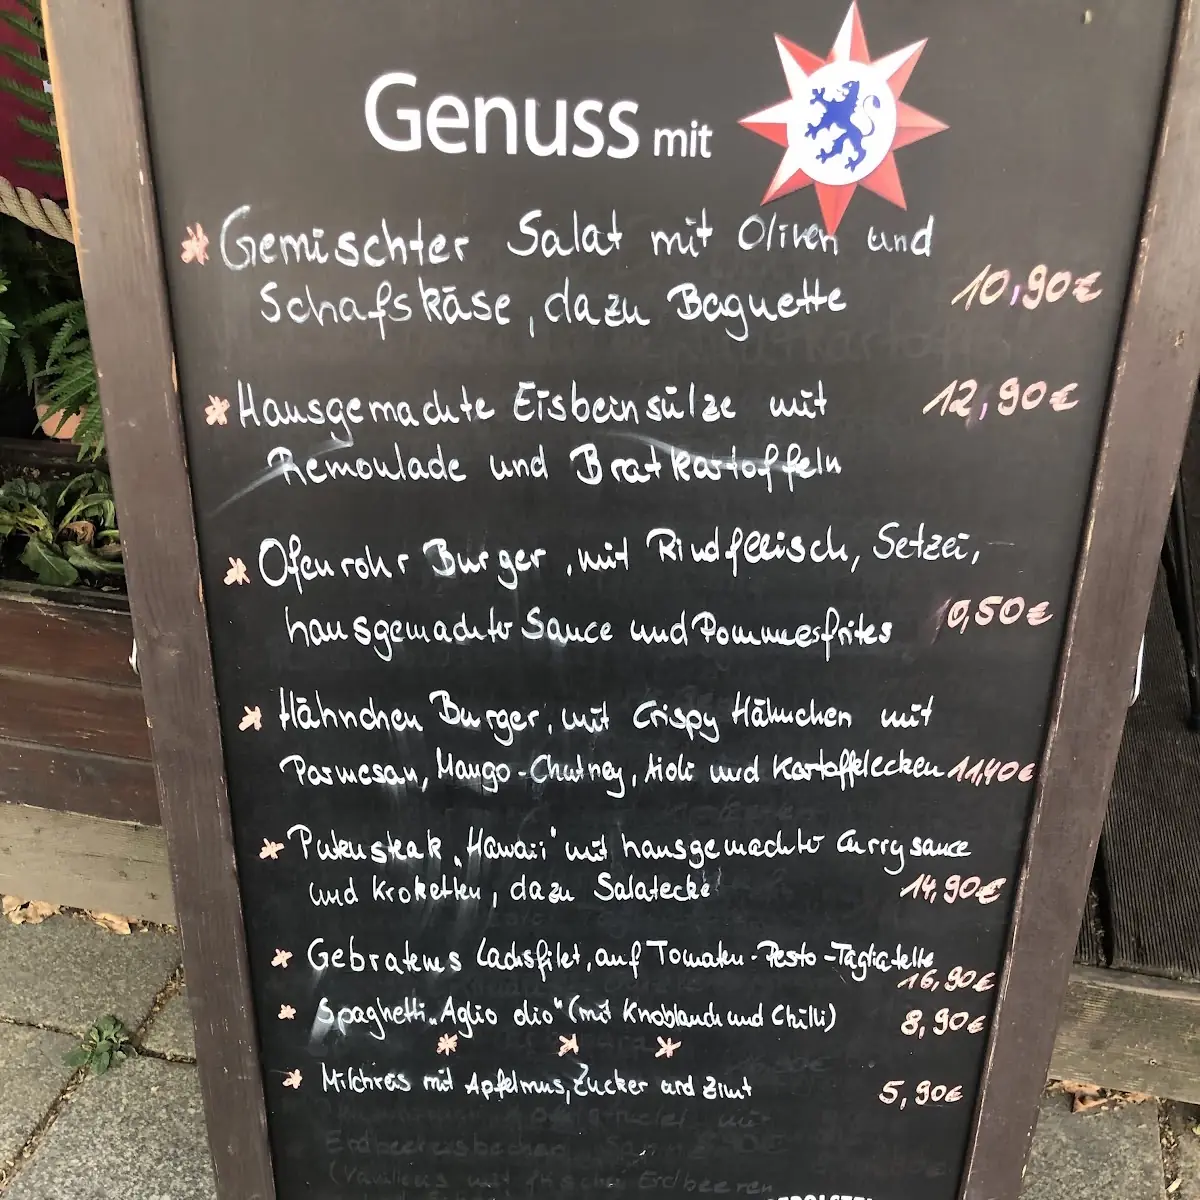 Genuss mit
* Gemischter Salat mit Oliven und
Schafskäse, dazu Baguette 10,90€
* Hausgemachte Eisbeinsülze mit 12,90€
Remoulade und Bratkartoffeln
* Ofenrohr Burger, mit Rindfleisch, Setzei,
hausgemachter Sauce und Pommesfrites 10,50€
* Hähnchen Burger, mit Crispy Hähnchen mit
Parmesan, Mango-Chutney, Aioli und Kartoffelecken 11,40€
* Putensteak „Hawaii" mit hausgemachter Currysauce
und Kroketten, dazu Salatecke 14,90€
* Gebratenes Lachsfilet, auf Tomaten-Pesto-Tagliatelle
16,90€
* Spaghetti „Aglio olio" (mit Knoblauch und Chilli) 8,90€
* * *
* Milchreis mit Apfelmus, Zucker und Zimt 5,90€
Erdbeeren